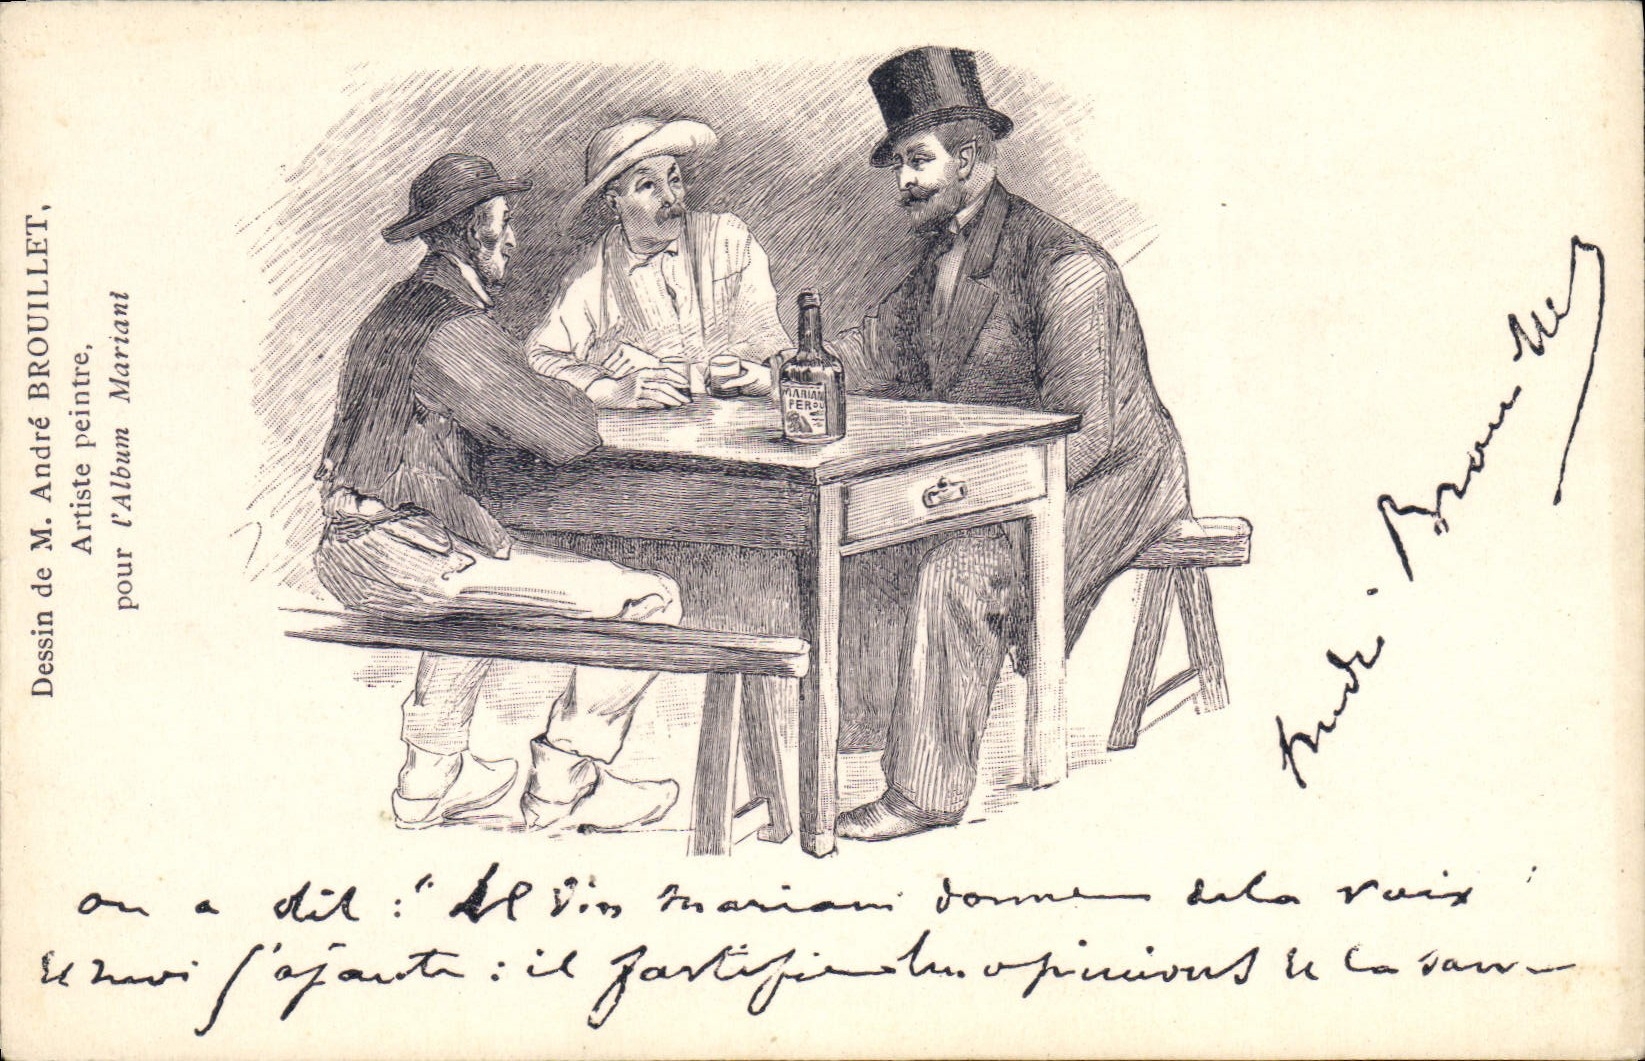 Dessin de M. André BROUILLET,
Artiste peintre,
pour l'Album Mariani
MARIANI
PEROU
André Brouillet
on a dit : "Le Vin Mariani donne de la voix
et moi j'ajoute : il fortifie les opinions et la